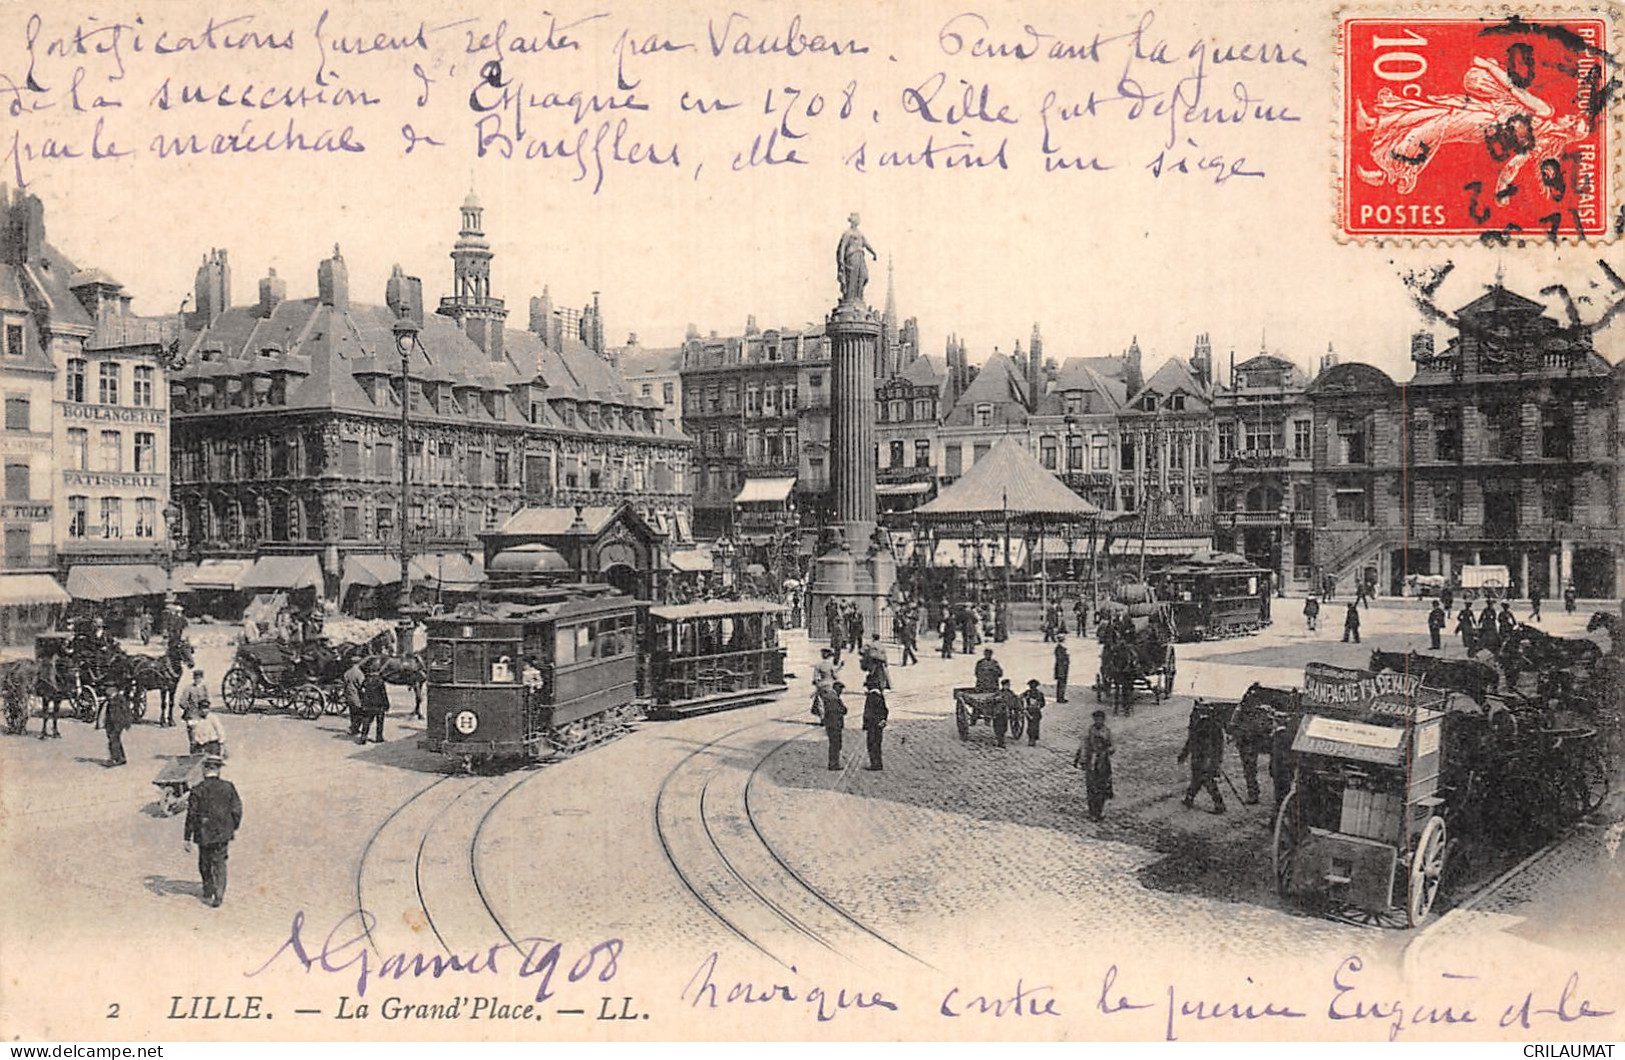 fortifications furent refaites par Vauban. Pendant la guerre
de la succession d'Espagne en 1708, Lille fut défendue
par le maréchal de Boufflers, elle soutint un siège
10c
REPUBLIQUE FRANÇAISE
POSTES
BOULANGERIE
PATISSERIE
H
CHAMPAGNE
EPERNAY
A Garnier 1908
héroïque contre le prince Eugène et le
2 LILLE. — La Grand'Place. — LL.
CRILAUMAT